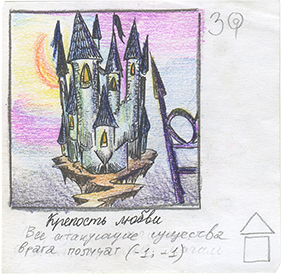 39
Крепость любви
Все атакующие существа
врага получат (-1; -1)